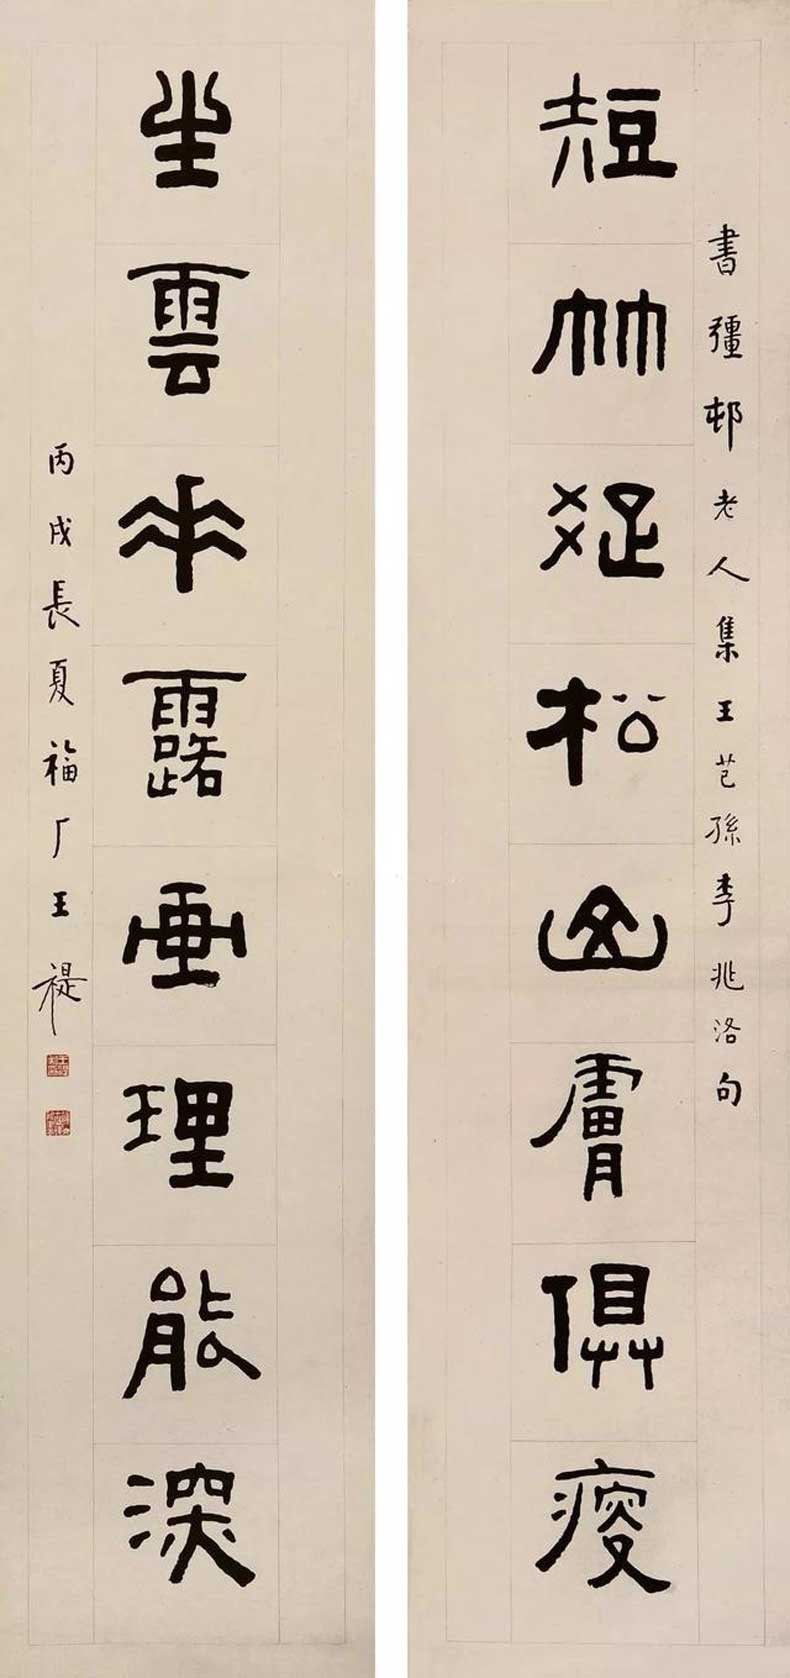 書彊邨老人集王芑孫李兆洛句
短竹疏松山膚俱瘦
坐雲垂露畫理能深
丙戌長夏福厂王禔